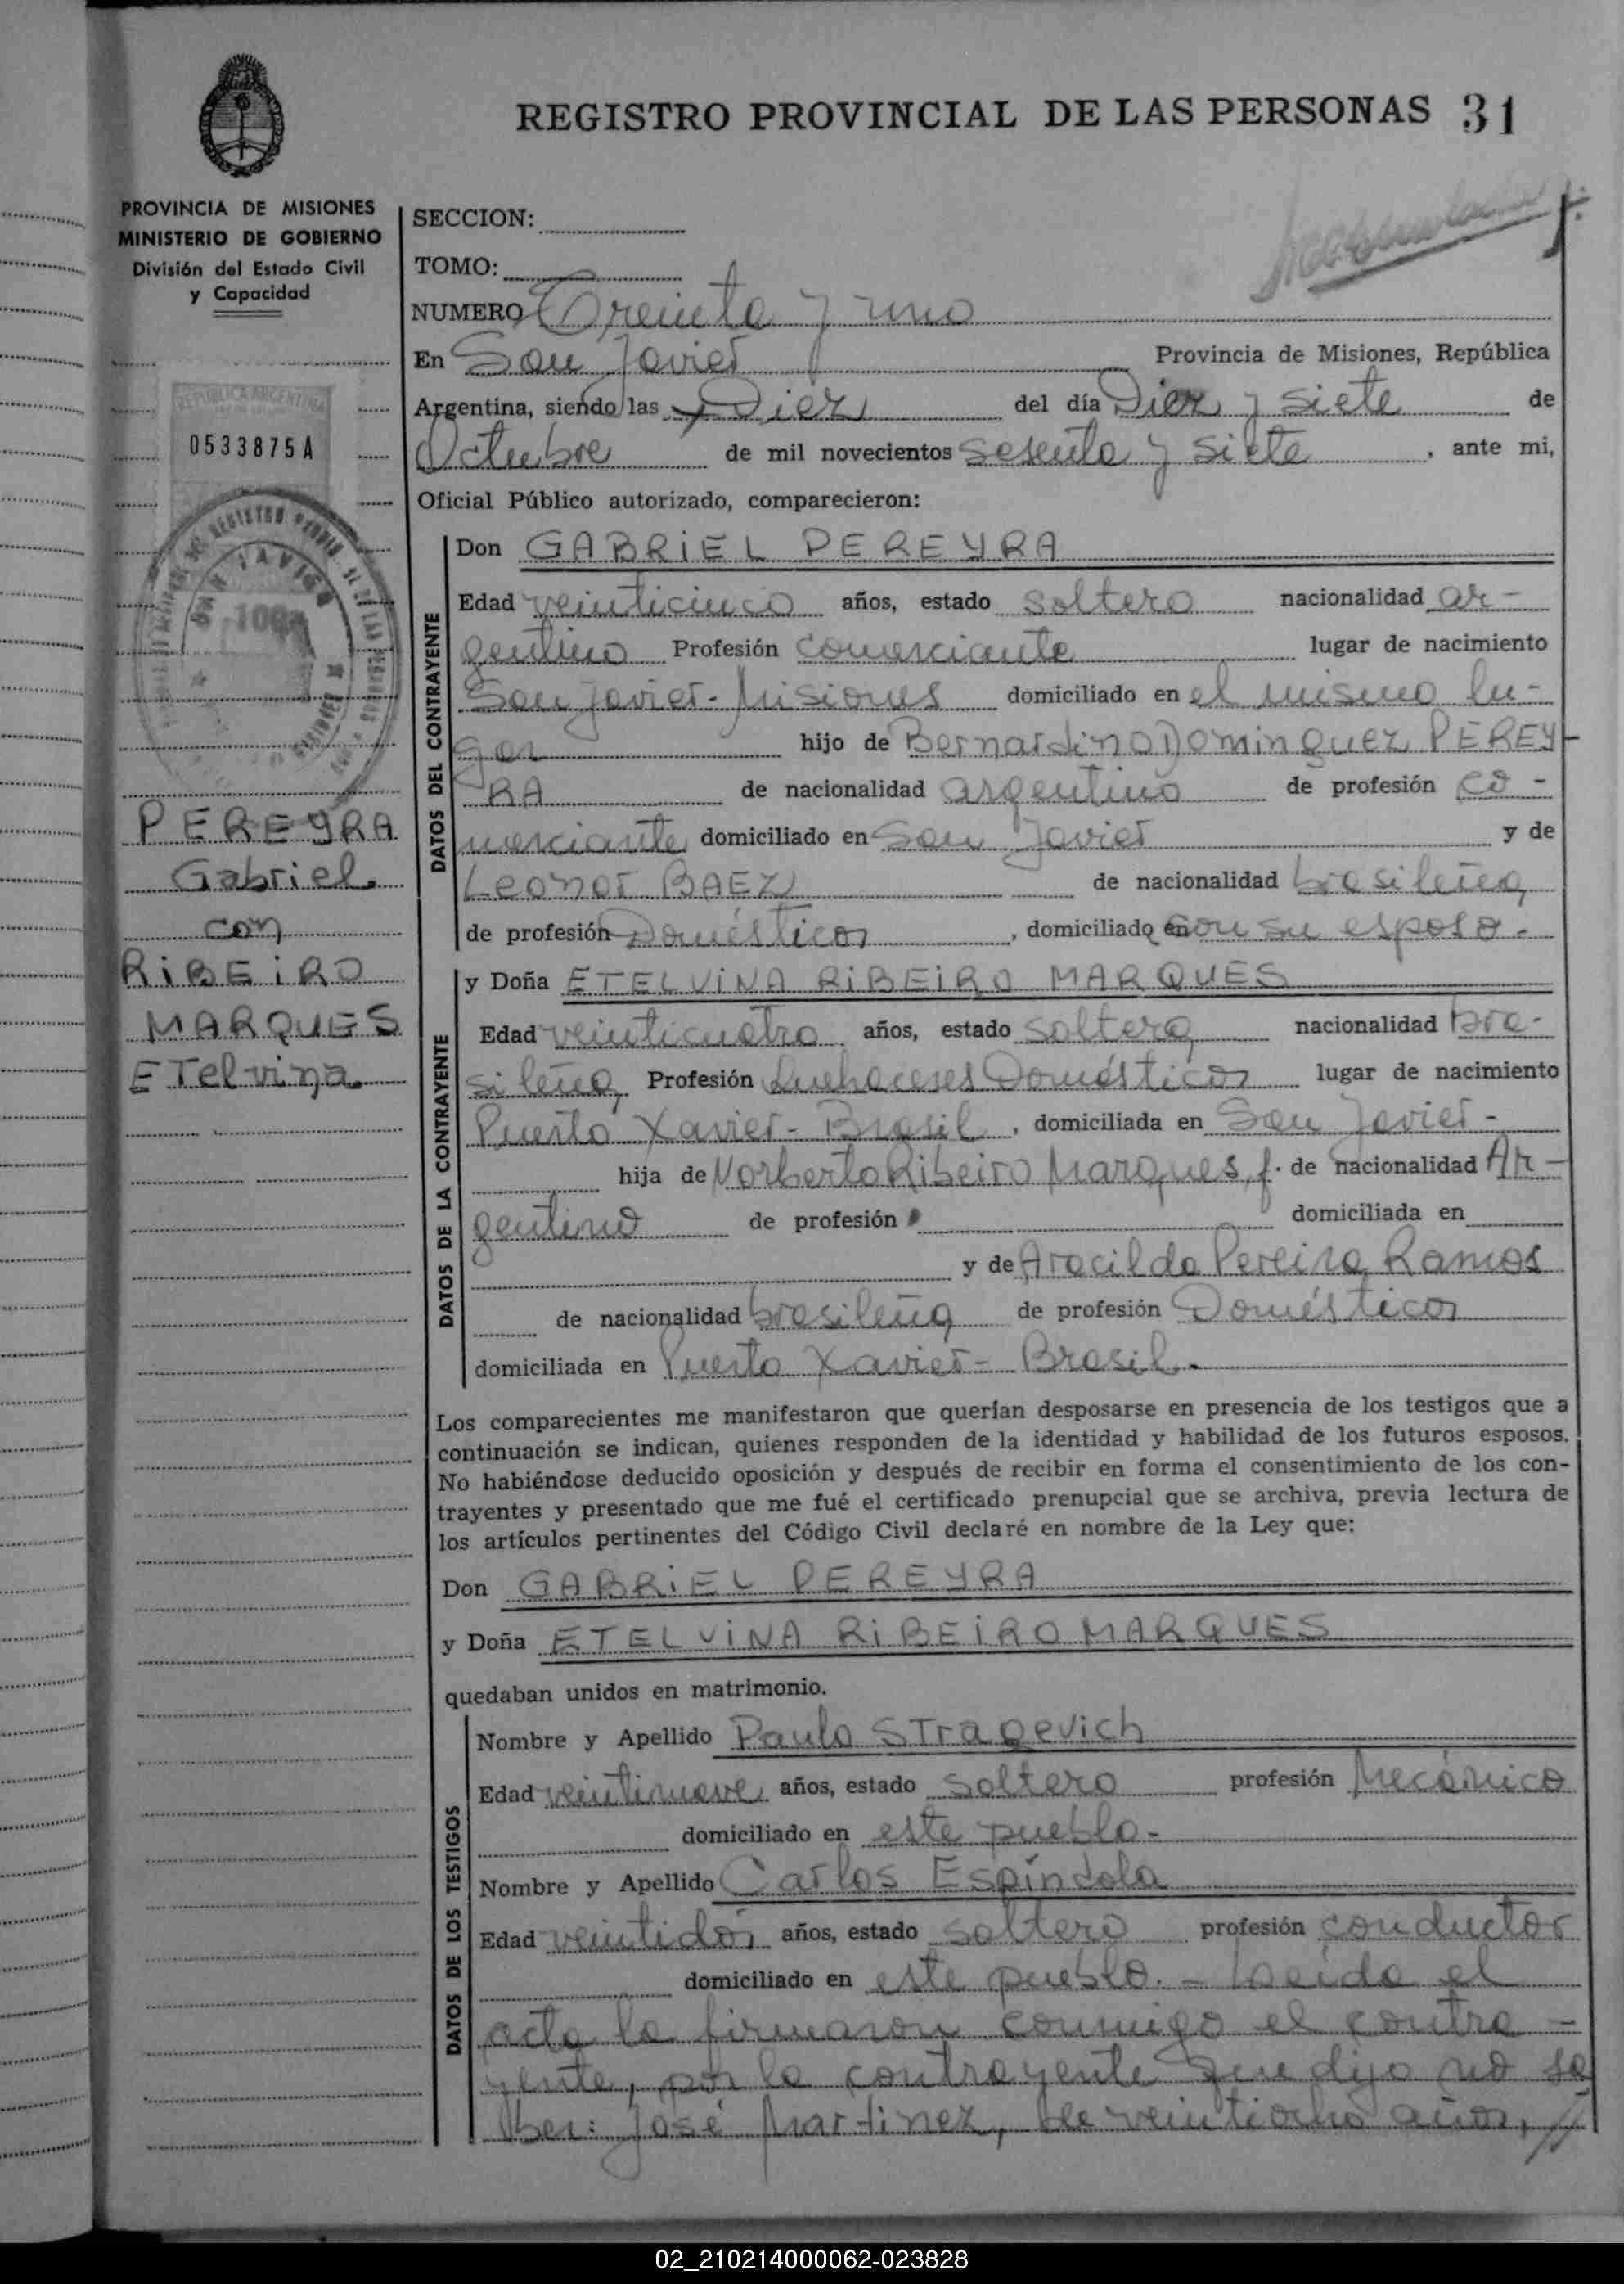 REGISTRO PROVINCIAL DE LAS PERSONAS 31
PROVINCIA DE MISIONES
MINISTERIO DE GOBIERNO
División del Estado Civil
y Capacidad
REPUBLICA ARGENTINA
0533875A
SAN JAVIER
PEREYRA
Gabriel
con
RiBEiRO
MARQUES
ETelvina
SECCION:
TOMO:
NUMERO Treinta y uno
En San Javier Provincia de Misiones, República
Argentina, siendo las Diez del día Diez y siete de
Octubre de mil novecientos sesenta y siete, ante mi,
Oficial Público autorizado, comparecieron:
DATOS DEL CONTRAYENTE
Don GABRiEL PEREYRA
Edad veinticinco años, estado soltero nacionalidad ar-
gentino Profesión comerciante lugar de nacimiento
San Javier- Misiones domiciliado en el mismo lu-
gar hijo de Bernardino Dominguez PEREY-
RA de nacionalidad argentino de profesión co-
merciante domiciliado en San Javier y de
Leonor BAEZ de nacionalidad brasileña
de profesión Domésticos, domiciliado en con su esposo.
DATOS DE LA CONTRAYENTE
y Doña ETELViNA RiBEiRO MARQUES
Edad veinticuatro años, estado soltera nacionalidad bra-
sileña, Profesión Quehaceres Domésticos lugar de nacimiento
Puerto Xavier- Brasil, domiciliada en San Javier-
hija de Norberto Ribeiro Marques, f. de nacionalidad Ar-
gentino de profesión domiciliada en
y de Aracilda Pereira Ramos
de nacionalidad brasileña de profesión Domésticos
domiciliada en Puerto Xavier- Brasil.
Los comparecientes me manifestaron que querían desposarse en presencia de los testigos que a
continuación se indican, quienes responden de la identidad y habilidad de los futuros esposos.
No habiéndose deducido oposición y después de recibir en forma el consentimiento de los con-
trayentes y presentado que me fué el certificado prenupcial que se archiva, previa lectura de
los artículos pertinentes del Código Civil declaré en nombre de la Ley que:
Don GABRiEL PEREYRA
y Doña ETELViNA RiBEiRO MARQUES
quedaban unidos en matrimonio.
DATOS DE LOS TESTIGOS
Nombre y Apellido Paulo
Edad veintinueve años, estado soltero profesión Mecánico
domiciliado en este pueblo-
Nombre y Apellido Carlos Espíndola
Edad veintidós años, estado soltero profesión conductor
domiciliado en este pueblo.- Leída el
acta la firmaron conmigo el contra-
yente, por la contrayente que dijo no sa
ber: José Martinez, de veintiocho años, //
02_210214000062-023828